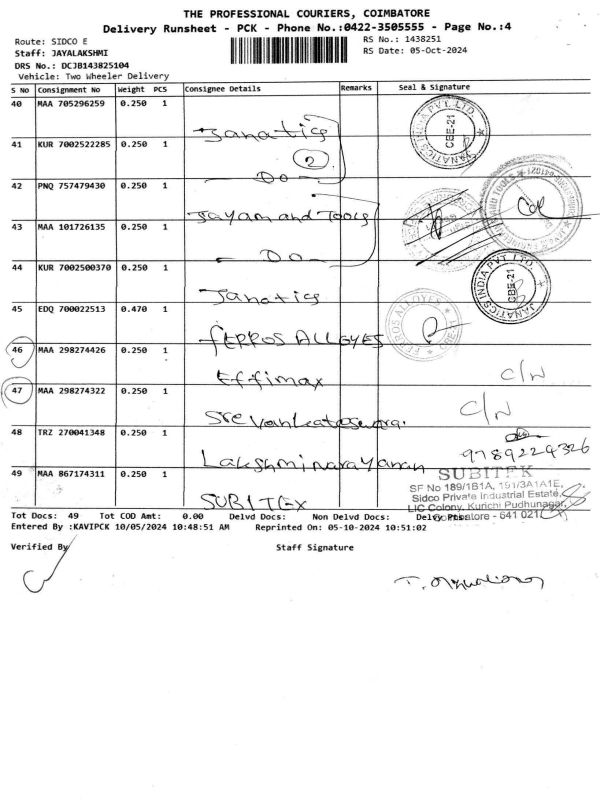 THE PROFESSIONAL COURIERS, COIMBATORE
Delivery Runsheet - PCK - Phone No.:0422-3505555 - Page No.:4
Route: SIDCO E
RS No.: 1438251
Staff: JAYALAKSHMI
RS Date: 05-Oct-2024
DRS No.: DCJB143825104
Vehicle: Two Wheeler Delivery
S No Consignment No Weight PCS Consignee Details Remarks Seal & Signature
40 MAA 705296259 0.250 1 Janatics JANATICS INDIA PVT. LTD. CBE-21
41 KUR 7002522285 0.250 1 2 Do
42 PNQ 757479430 0.250 1 Jayam and Tools
43 MAA 101726135 0.250 1 Do
44 KUR 7002500370 0.250 1 Janatics JANATICS INDIA PVT. LTD. CBE-21
45 EDQ 700022513 0.470 1 FERROS ALLOYES FERROS ALLOYES
46 MAA 298274426 0.250 1 Effimax C/N
47 MAA 298274322 0.250 1 Sre C/N
48 TRZ 270041348 0.250 1 Lakshminarayanan 9789224326
49 MAA 867174311 0.250 1 SUBITEX
SUBITEK
SF No 189/1B1A, 191/3A1A1E,
Sidco Private Industrial Estate,
LIC Colony, Kurichi Pudhunagar,
Coimbatore - 641 021
Tot Docs: 49 Tot COD Amt: 0.00 Delvd Docs: Non Delvd Docs: Delvy Pts:
Entered By :KAVIPCK 10/05/2024 10:48:51 AM Reprinted On: 05-10-2024 10:51:02
Verified By Staff Signature